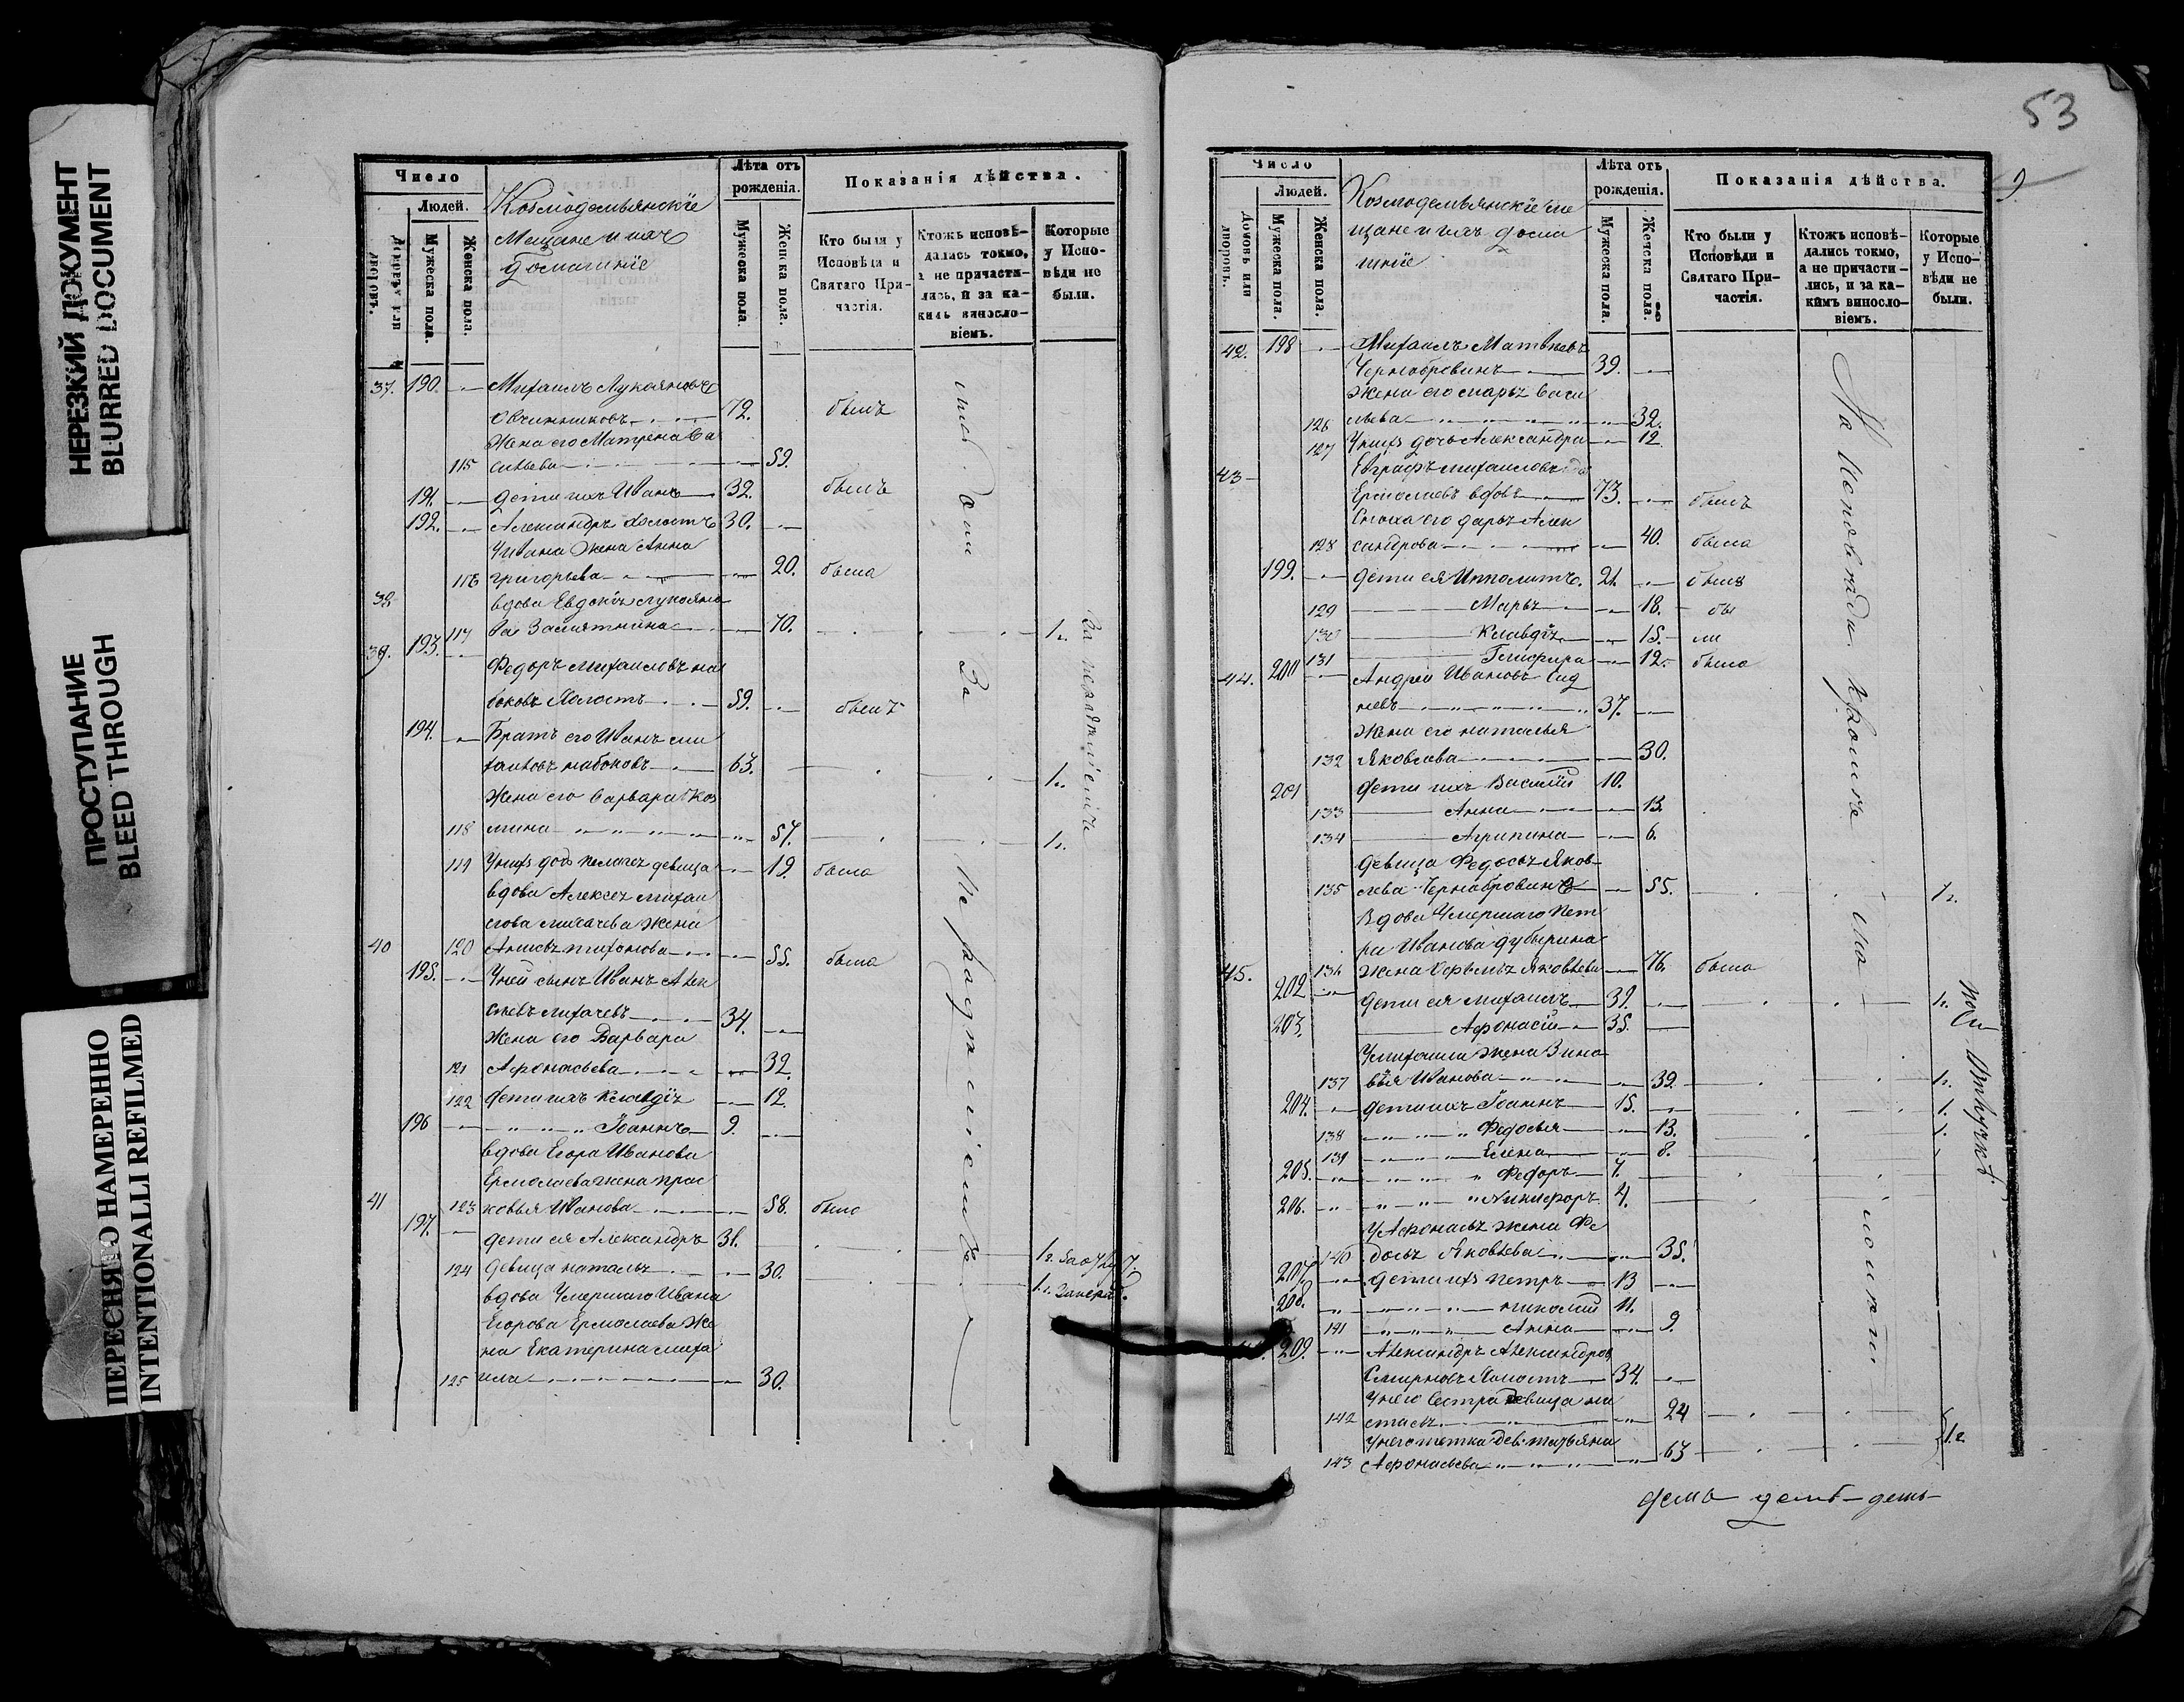 НЕРЕЗКИЙ ДОКУМЕНТ
BLURRED DOCUMENT
ПРОСТУПАНИЕ
BLEED THROUGH
ПЕРЕСНЯТО НАМЕРЕННО
INTENTIONALLI REFILMED
Число
Людей.
Мужеска пола.
Женска пола.
Козмодемьянскіе
Мещане и ихъ
домашніе
Лѣта отъ
рожденія.
Мужеска пола.
Женска пола.
Показанія дѣйства.
Кто были у
Исповѣди и
Святаго При-
частія.
Ктожъ исповѣ-
дались токмо,
а не причасти-
лись, и за ка-
кимъ виносло-
віемъ.
Которые
у Испо-
вѣди не
были.
37. 190. Михаилъ Лукояновъ
Овчинниковъ 72. былъ
Жена его Матрена Ва
115 сильева 59.
191. дети ихъ Иванъ 32. былъ
192. Александръ холостъ 30.
У Ивана жена Анна
116 григорьева 20. была
38 вдова Евдокія Лукояно
117 ва 70. 1.
39. 193. Федоръ Михаиловъ на
боковъ Холостъ 59. былъ
194. Братъ его Иванъ ми
хаиловъ набоковъ 63. 1.
Жена его Варвара Коз
118 мина 57. 1.
119 У нихъ дочь Пелагея девица 19. была
вдова Алексея михаи
лова лихачева жена
40 120 Анисья тихонова 55. была
195. У ней сынъ Иванъ Алек
сеевъ лихачевъ 34.
Жена его Варвара
121 Афонасьева 32.
122 дети ихъ Клавдія 12.
196 Іоаннъ 9.
вдова Егора Иванова
Ермолаева жена прас
41 123 ковья Иванова 58. была
197. дети ея Александръ 31. 1.
124 девица наталья 30. 1.
вдова Умершаго Ивана
Егорова Ермолаева Же
на Екатерина миха
125 30.
За
Не радѣніемъ
За нерадѣніемъ
53
9.
Число
Людей.
домовъ или
дворовъ.
Мужеска пола.
Женска пола.
Козмодемьянскіе ме
щане и ихъ дома
шніе
Лѣта отъ
рожденія.
Мужеска пола.
Женска пола.
Показанія дѣйства.
Кто были у
Исповѣди и
Святаго При-
частія.
Ктожъ исповѣ-
дались токмо,
а не причасти-
лись, и за ка-
кимъ виносло-
віемъ.
Которые
у Испо-
вѣди не
были.
42. 198 Михаилъ Матвеевъ
Чернобровинъ 39.
Жена его марья васи
126 льева 32.
127 У нихъ дочь Александра 12.
43 Евграфъ михаиловъ
Ермолаевъ вдовъ 73. былъ
Сноха его дарья Алек
128 сандрова 40. была
199. дети ея Ипполитъ. 21. былъ
129 Марья 18. бы
130 Клавдія 15. ли
131 Глафира 12. была
44. 200 Андрей Ивановъ Сид
невъ 37.
Жена его наталья
132 Яковлева 30.
201 дети ихъ Василій 10.
133 Анна 13.
134 Агрипина 6.
девица Федосья Яков
135 лева Чернобровина 55. 1.
Вдова Умершаго Пет
ра Иванова дубырина
45. 136 жена Яковлева 76. была
202 дети ея михаилъ 39. 1.
203. Афонасій 35.
У михаила жена Зино
137 вья Иванова 39. 1.
204. дети ихъ Іоаннъ 15. 1.
138 Федосья 13. 1.
139 Елена 8.
205. Федоръ 7.
206. Никифоръ 4.
У Афонасья жена Фе
140 досья Яковлева 35.
207. дети ихъ петръ 13
208. николай 11.
141 Анна 9.
209. Александръ Александров
Смирновъ Холостъ 34.
У него сестра девица на
142 стасья 24
У него тетка дев. татьяна
143 Афонасьева 63 1.
На Исповѣди